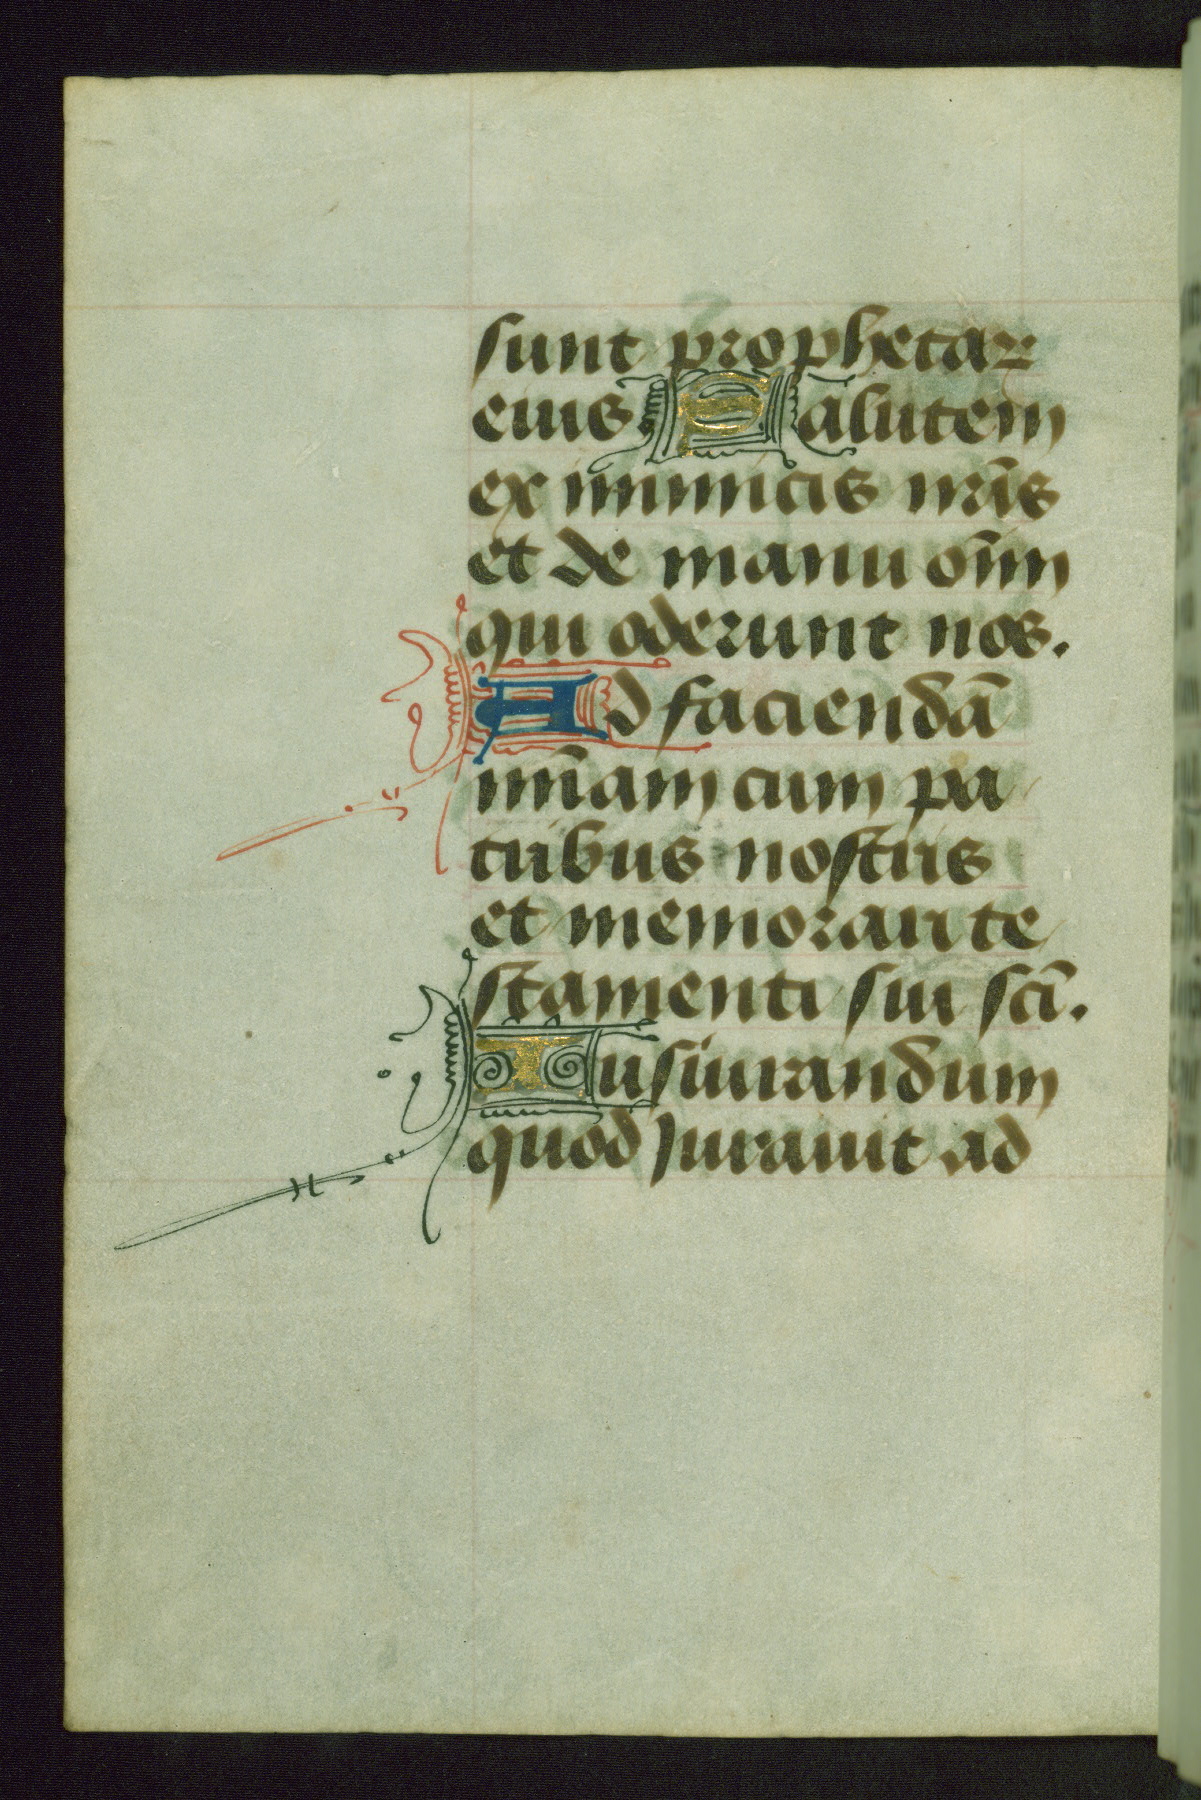 sunt prophetaꝝ
eius Salutem
ex inimicis nr̄is
et de manu oīm
qui oderunt nos.
Ad faciendā
mīam cum pa
tribus nostris
et memorari te
stamenti sui sc̄i.
Iusiurandum
quod iurauit ad